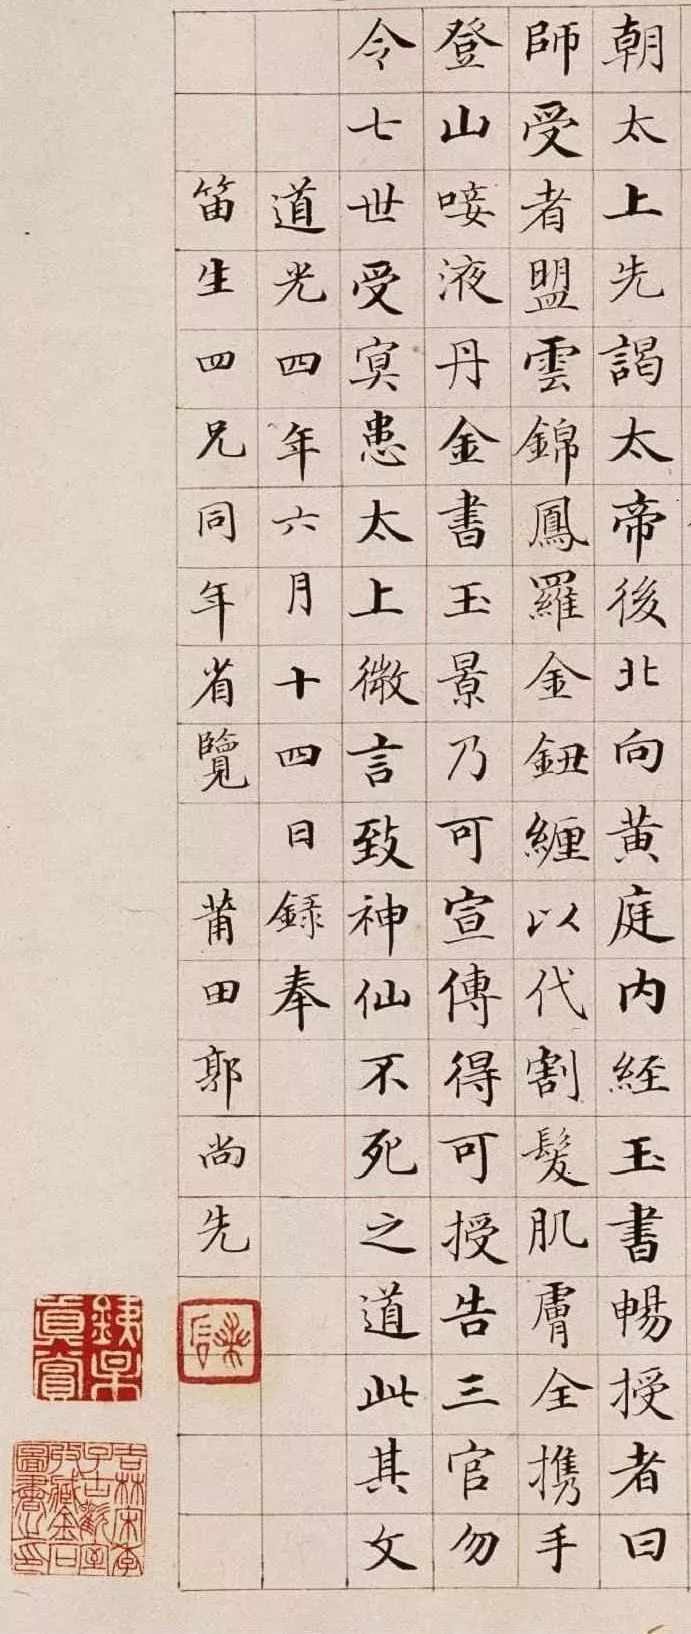 朝太上先謁太帝後北向黄庭内経玉書暢授者曰
師受者盟雲錦鳳羅金鈕纏以代割髮肌膚全携手
登山唼液丹金書玉景乃可宣傳得可授告三官勿
令七世受冥患太上微言致神仙不死之道此其文
道光四年六月十四日録奉
笛生四兄同年省覽 莆田郭尚先
銕某真賞
吉林宋季子古歡室收藏金石圖書之印